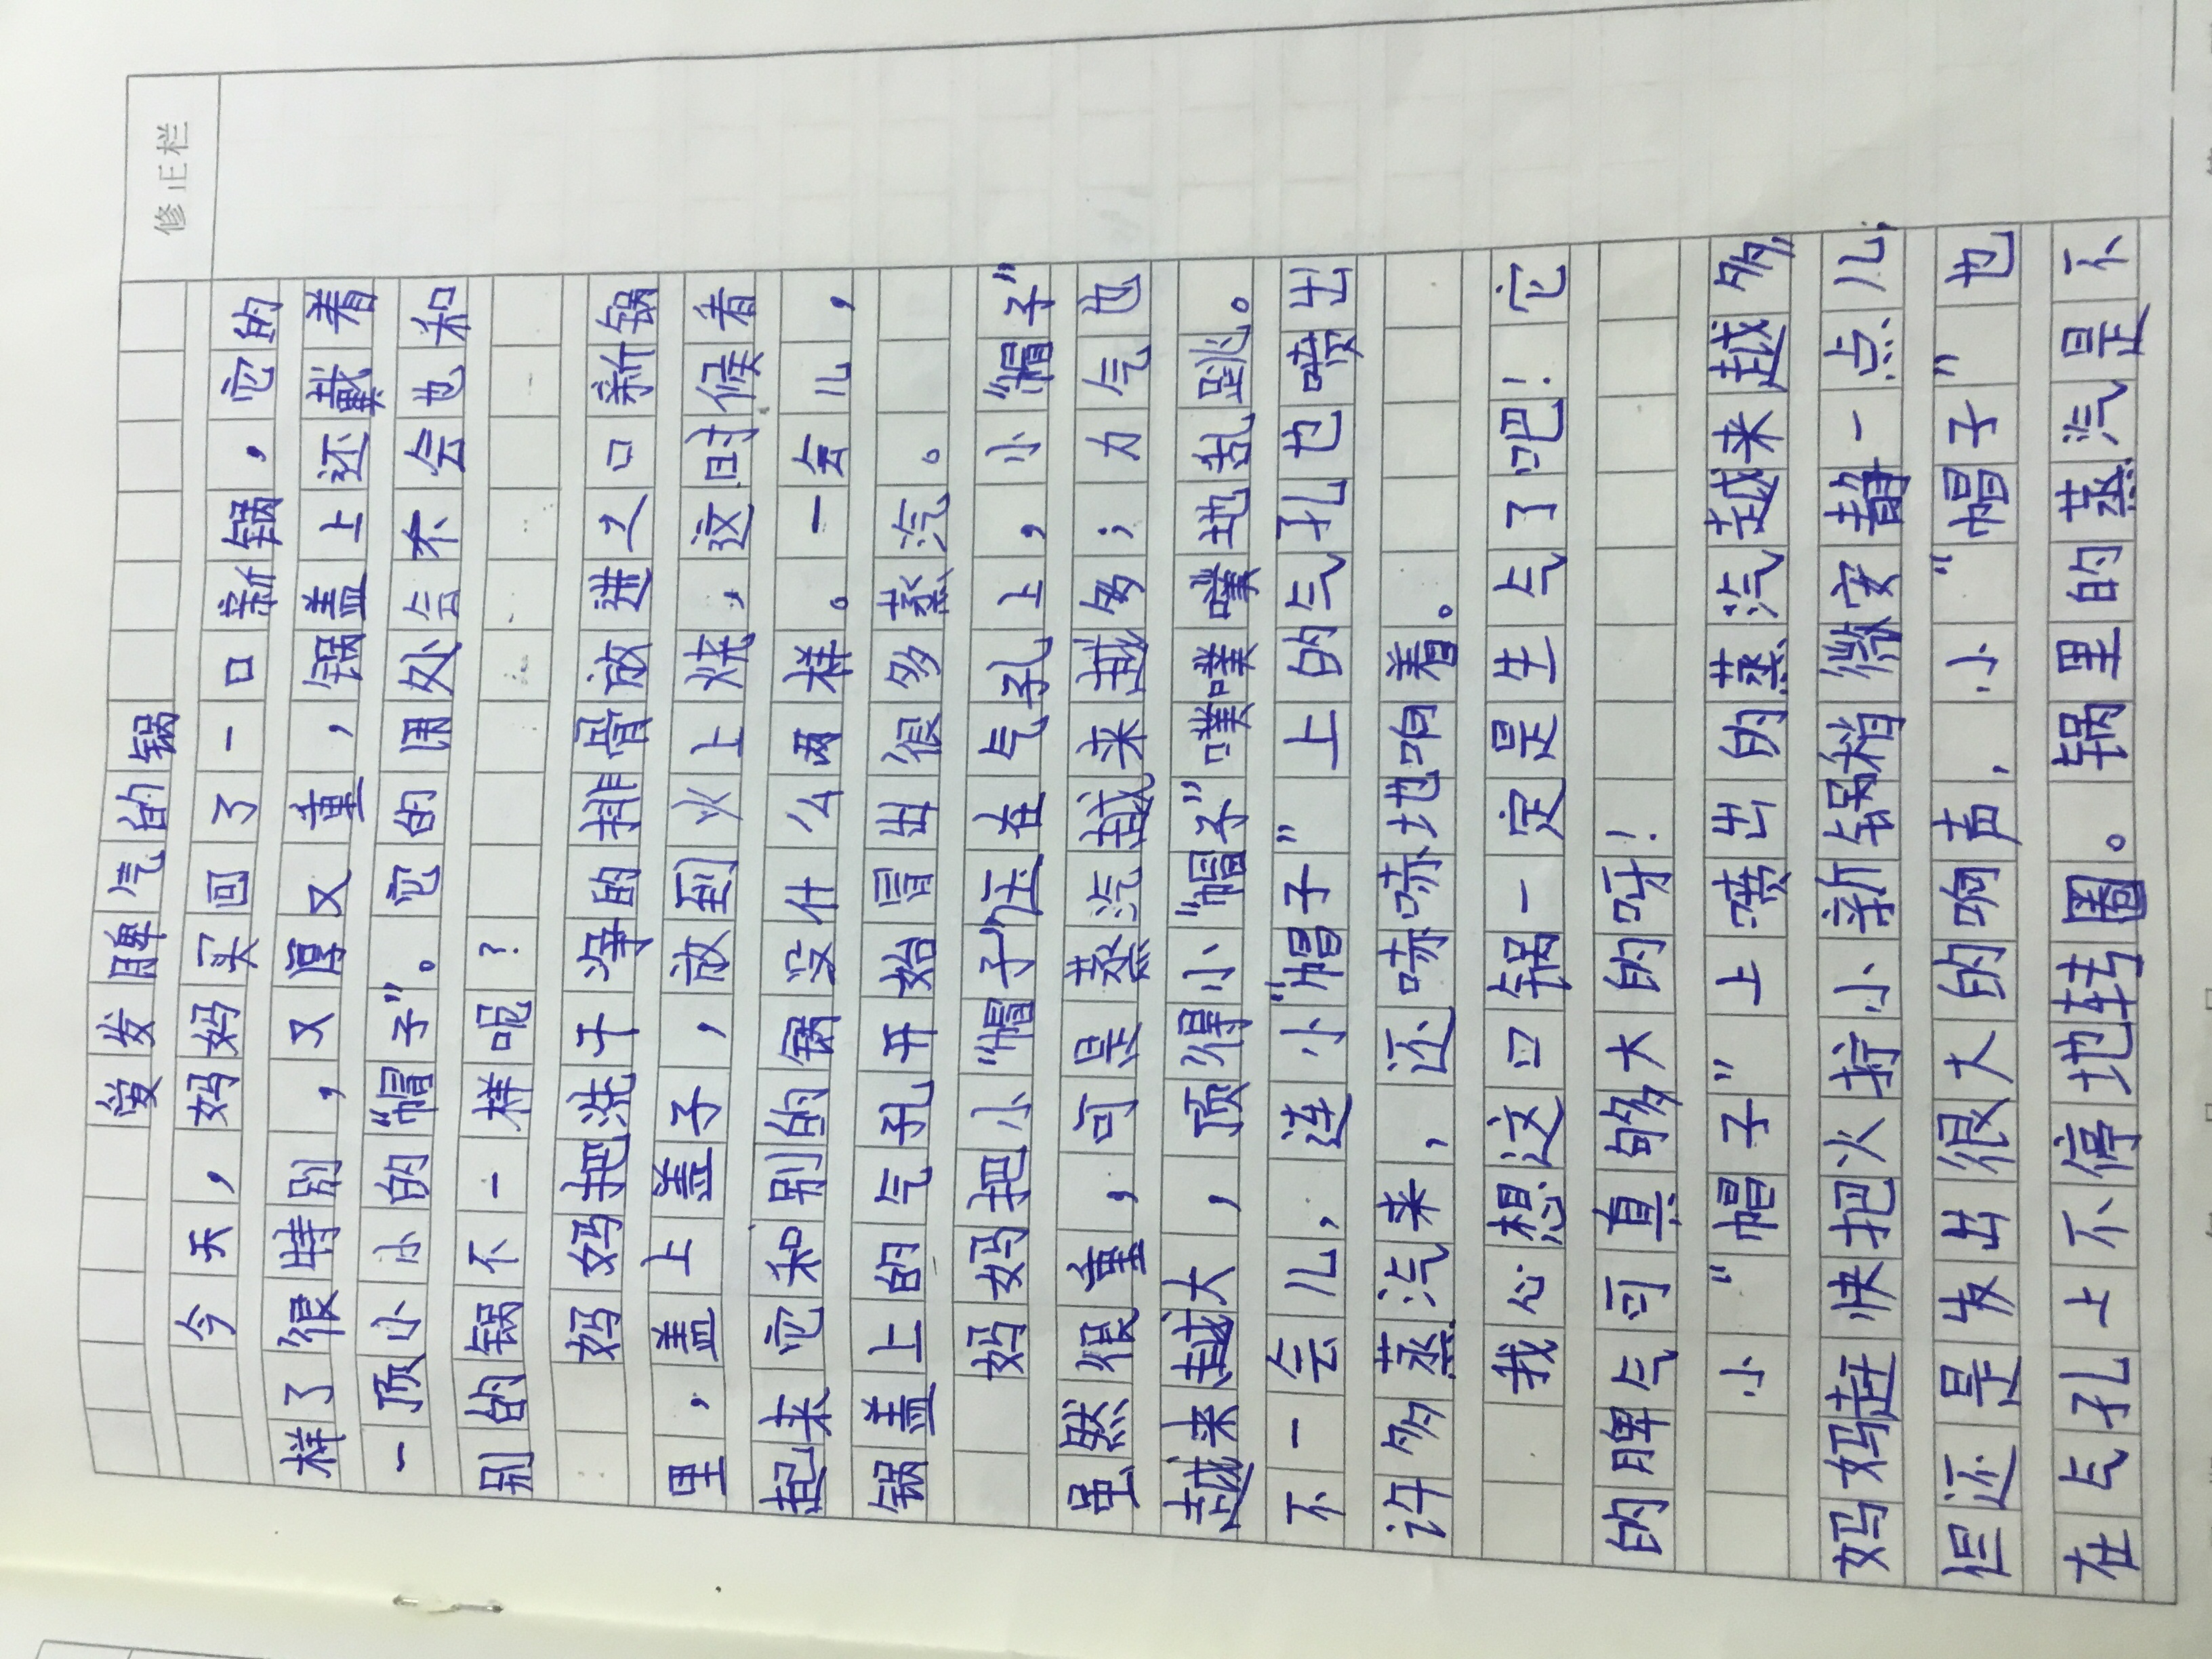 修正栏
爱发脾气的锅
今天，妈妈买回了一口新锅，它的
样了很特别，又厚又重，锅盖上还戴着
一顶小小的“帽子”。它的用处会不会也和
别的锅不一样呢？
妈妈把洗干净的排骨放进入口新锅
里，盖上盖子，放到火上烧，这时候看
起来它和别的锅没什么两样。一会儿，
锅盖上的气孔开始冒出很多蒸汽。
妈妈把小“帽子”压在气孔上，小“帽子”
虽然很重，可是蒸汽越来越多；力气也
越来越大，顶得小“帽子”噗噗噗地乱跳。
不一会儿，连小“帽子”上的气孔也喷出
许多蒸汽来，还哧哧地响着。
我心想这口锅一定是生气了吧！它
的脾气可真够大的呀！
小“帽子”上喷出的蒸汽越来越多，
妈妈赶快把火拧小新锅稍微安静一点儿，
但还是发出很大的响声，小“帽子”也
在气孔上不停地转圈。锅里的蒸汽是不